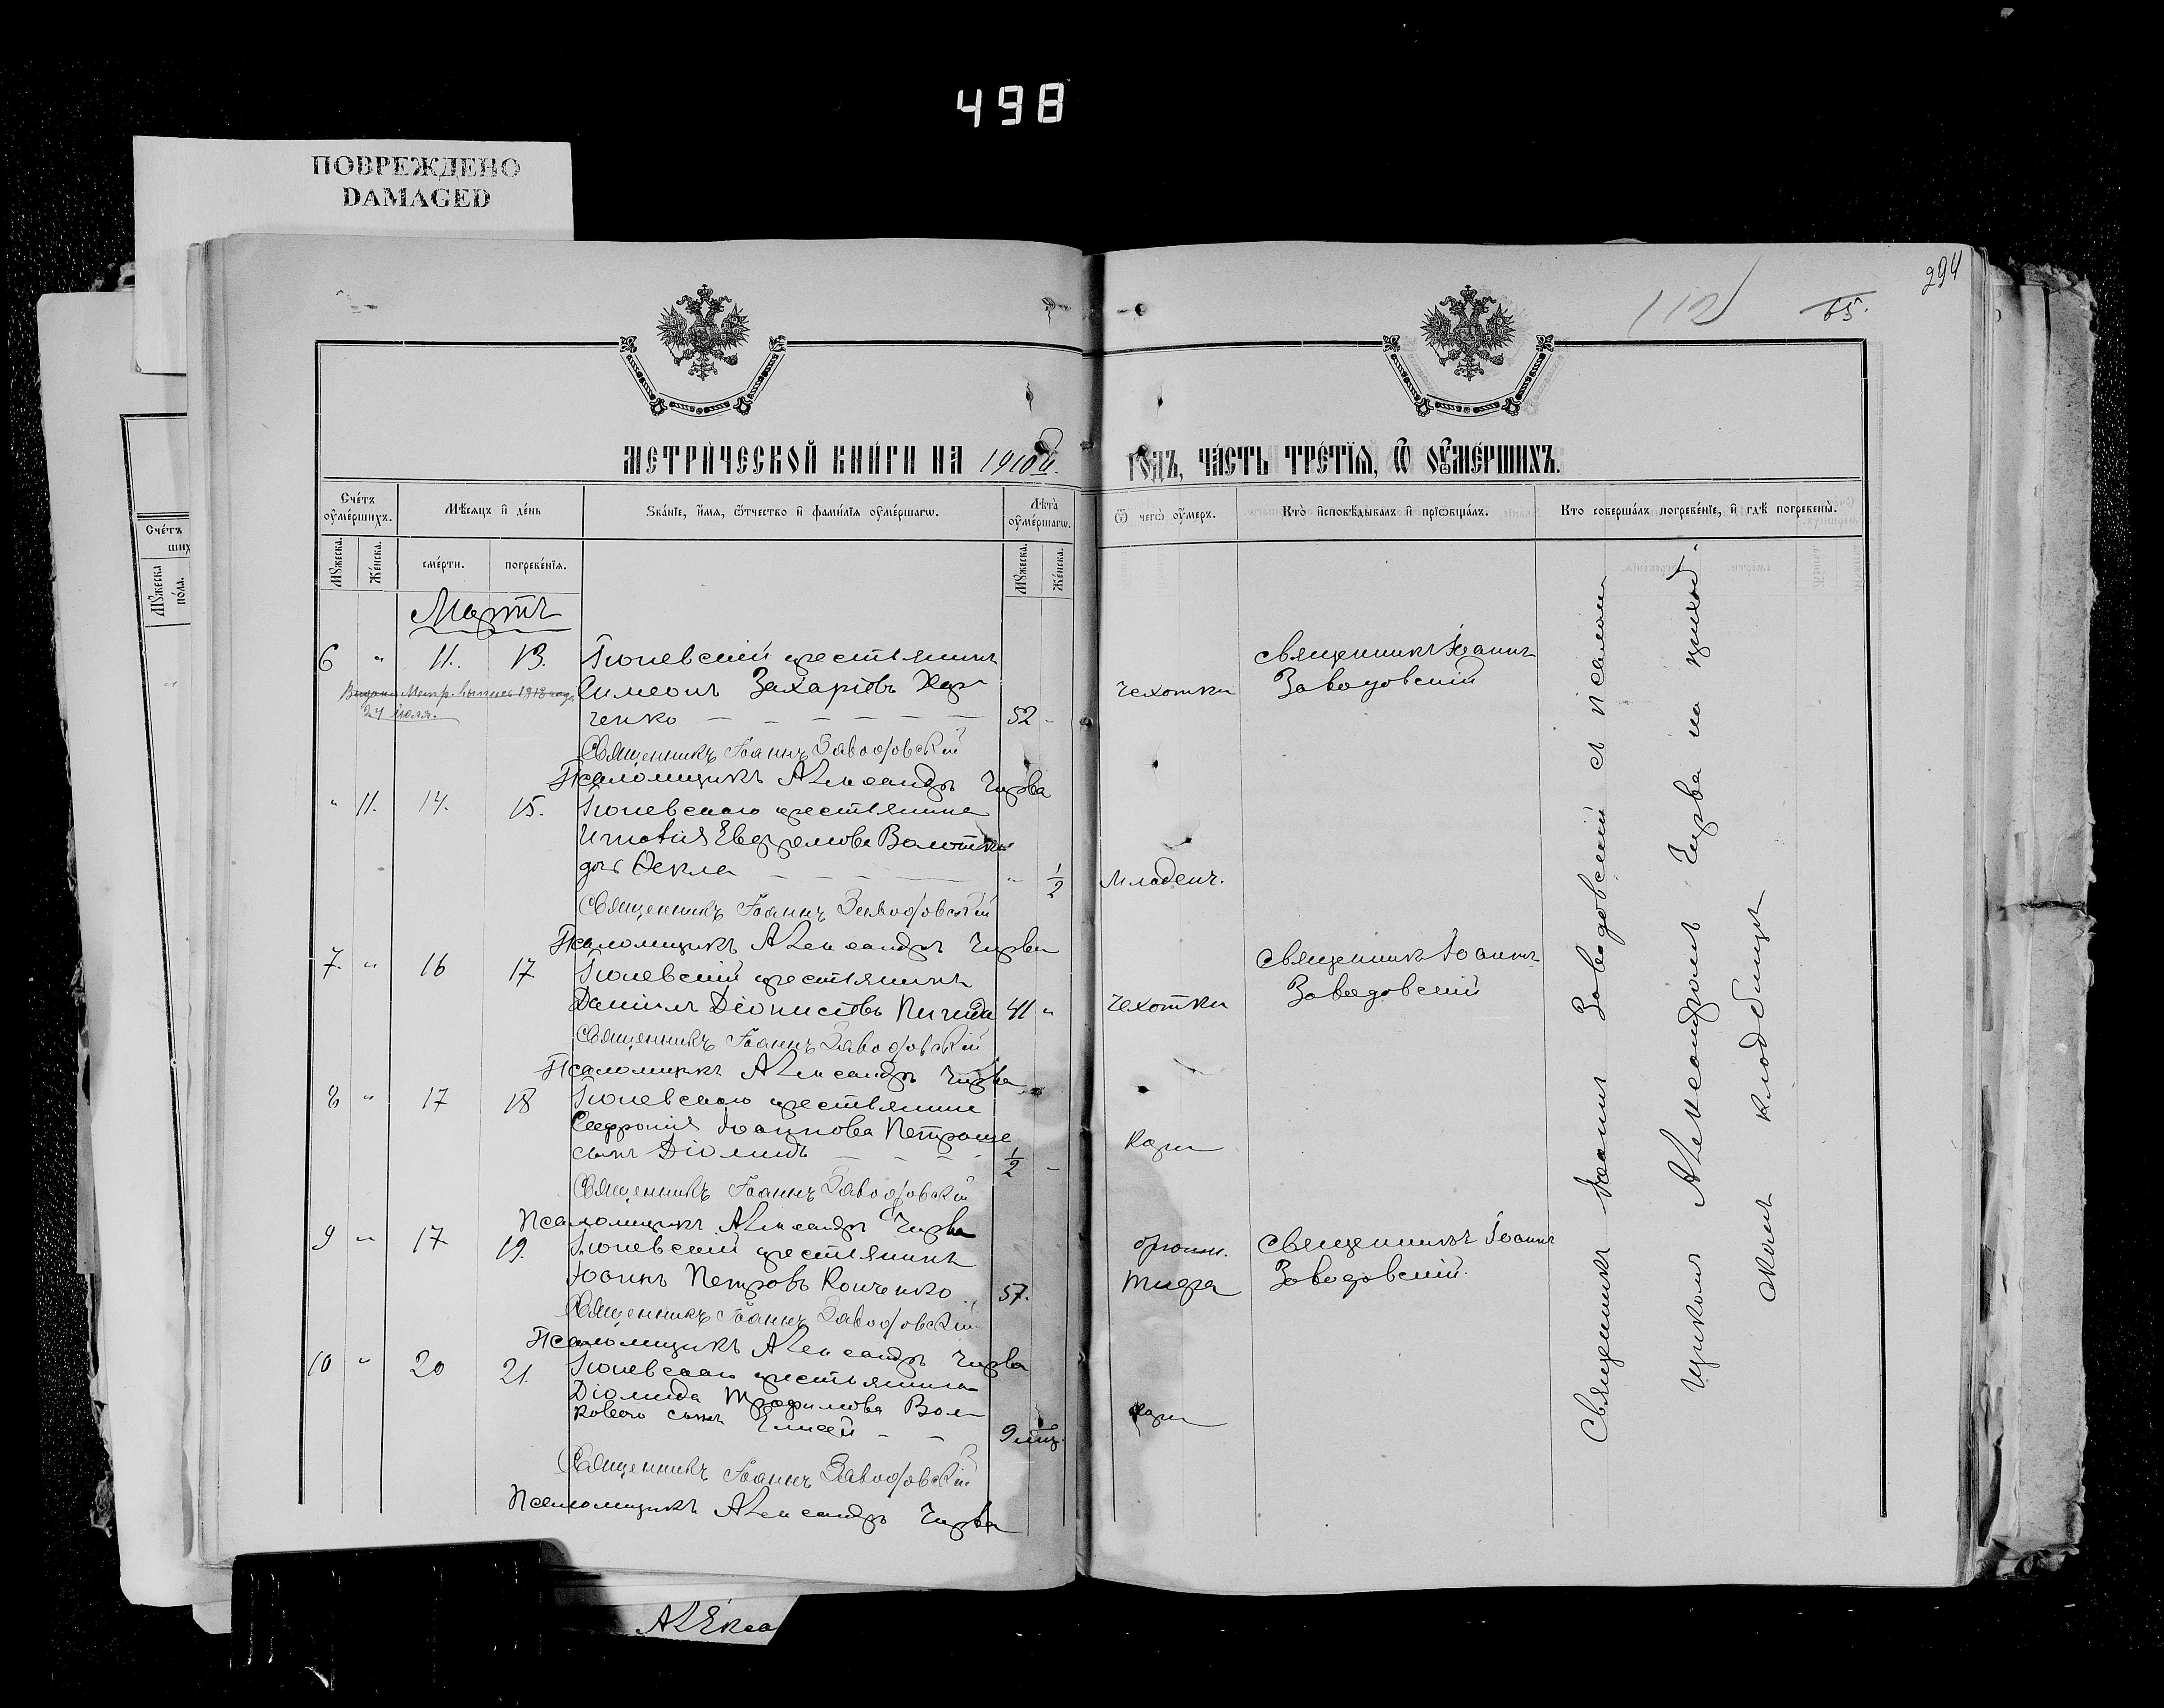 498
ПОВРЕЖДЕНО
DAMAGED
294
112
65.
МЕТРИЧЕСКОЙ КНИГИ НА 1910й. ГОДЪ, ЧАСТЬ ТРЕТІЯ, Ѿ ОУМЕРШИХЪ.
Счетъ оумершихъ.
Мѣсяцъ и день
Званіе, имя, отчество и фамилія оумершагѡ.
Лѣта оумершагѡ.
Ѿ чегѡ оумеръ.
Кто исповѣдывалъ и пріобщалъ.
Кто совершалъ погребеніе, и гдѣ погребены.
Мужеска.
Женска.
смерти.
погребенія.
Мужеска.
Женска.
Счетъ
ших
Мужеска пола.
Мартъ
6 " 11. 13.
крестьянинъ
Выдана Метр. выпись 1918 года
24 Июля.
Симеонъ Захаріевъ Хар
ченко 52 -
чехотки
Священникъ Іоаннъ
Заводовскій
Священникъ Іоаннъ Заводовскій
Псаломщикъ Александръ Чирва
" 11. 14. 15.
крестьянина
Игнатія
дочь Ѳекла " 1/2
Младенч.
Священникъ Іоаннъ Заводовскій
Псаломщикъ Александръ Чирва
7. " 16 17
крестьянинъ
Даніилъ Діонисіевъ 41 "
чехотки
Священникъ Іоаннъ
Заводовскій
Священникъ Іоаннъ Заводовскій
Псаломщикъ Александръ Чирва
8 " 17 18
крестьянина
Софронія Іоаннова
сынъ Діомидъ 1/2 -
Кори
Священникъ Іоаннъ Заводовскій
Псаломщикъ Александръ Чирва
9 " 17 19.
крестьянинъ
Іоаннъ Петровъ Конченко 57.
брюшн.
тифа
Священникъ Іоаннъ
Заводовскій.
Священникъ Іоаннъ Заводовскій
Псаломщикъ Александръ Чирва
10 " 20 21.
крестьянина
Діомида Трофимова Вол
сынъ Елисей 9 мѣц.
кори
Священникъ Іоаннъ Заводовскій
Псаломщикъ Александръ Чирва
Священникъ Іоаннъ Заводовскій съ псалом
щикомъ Александромъ Чирва на приход.
скомъ кладбищѣ